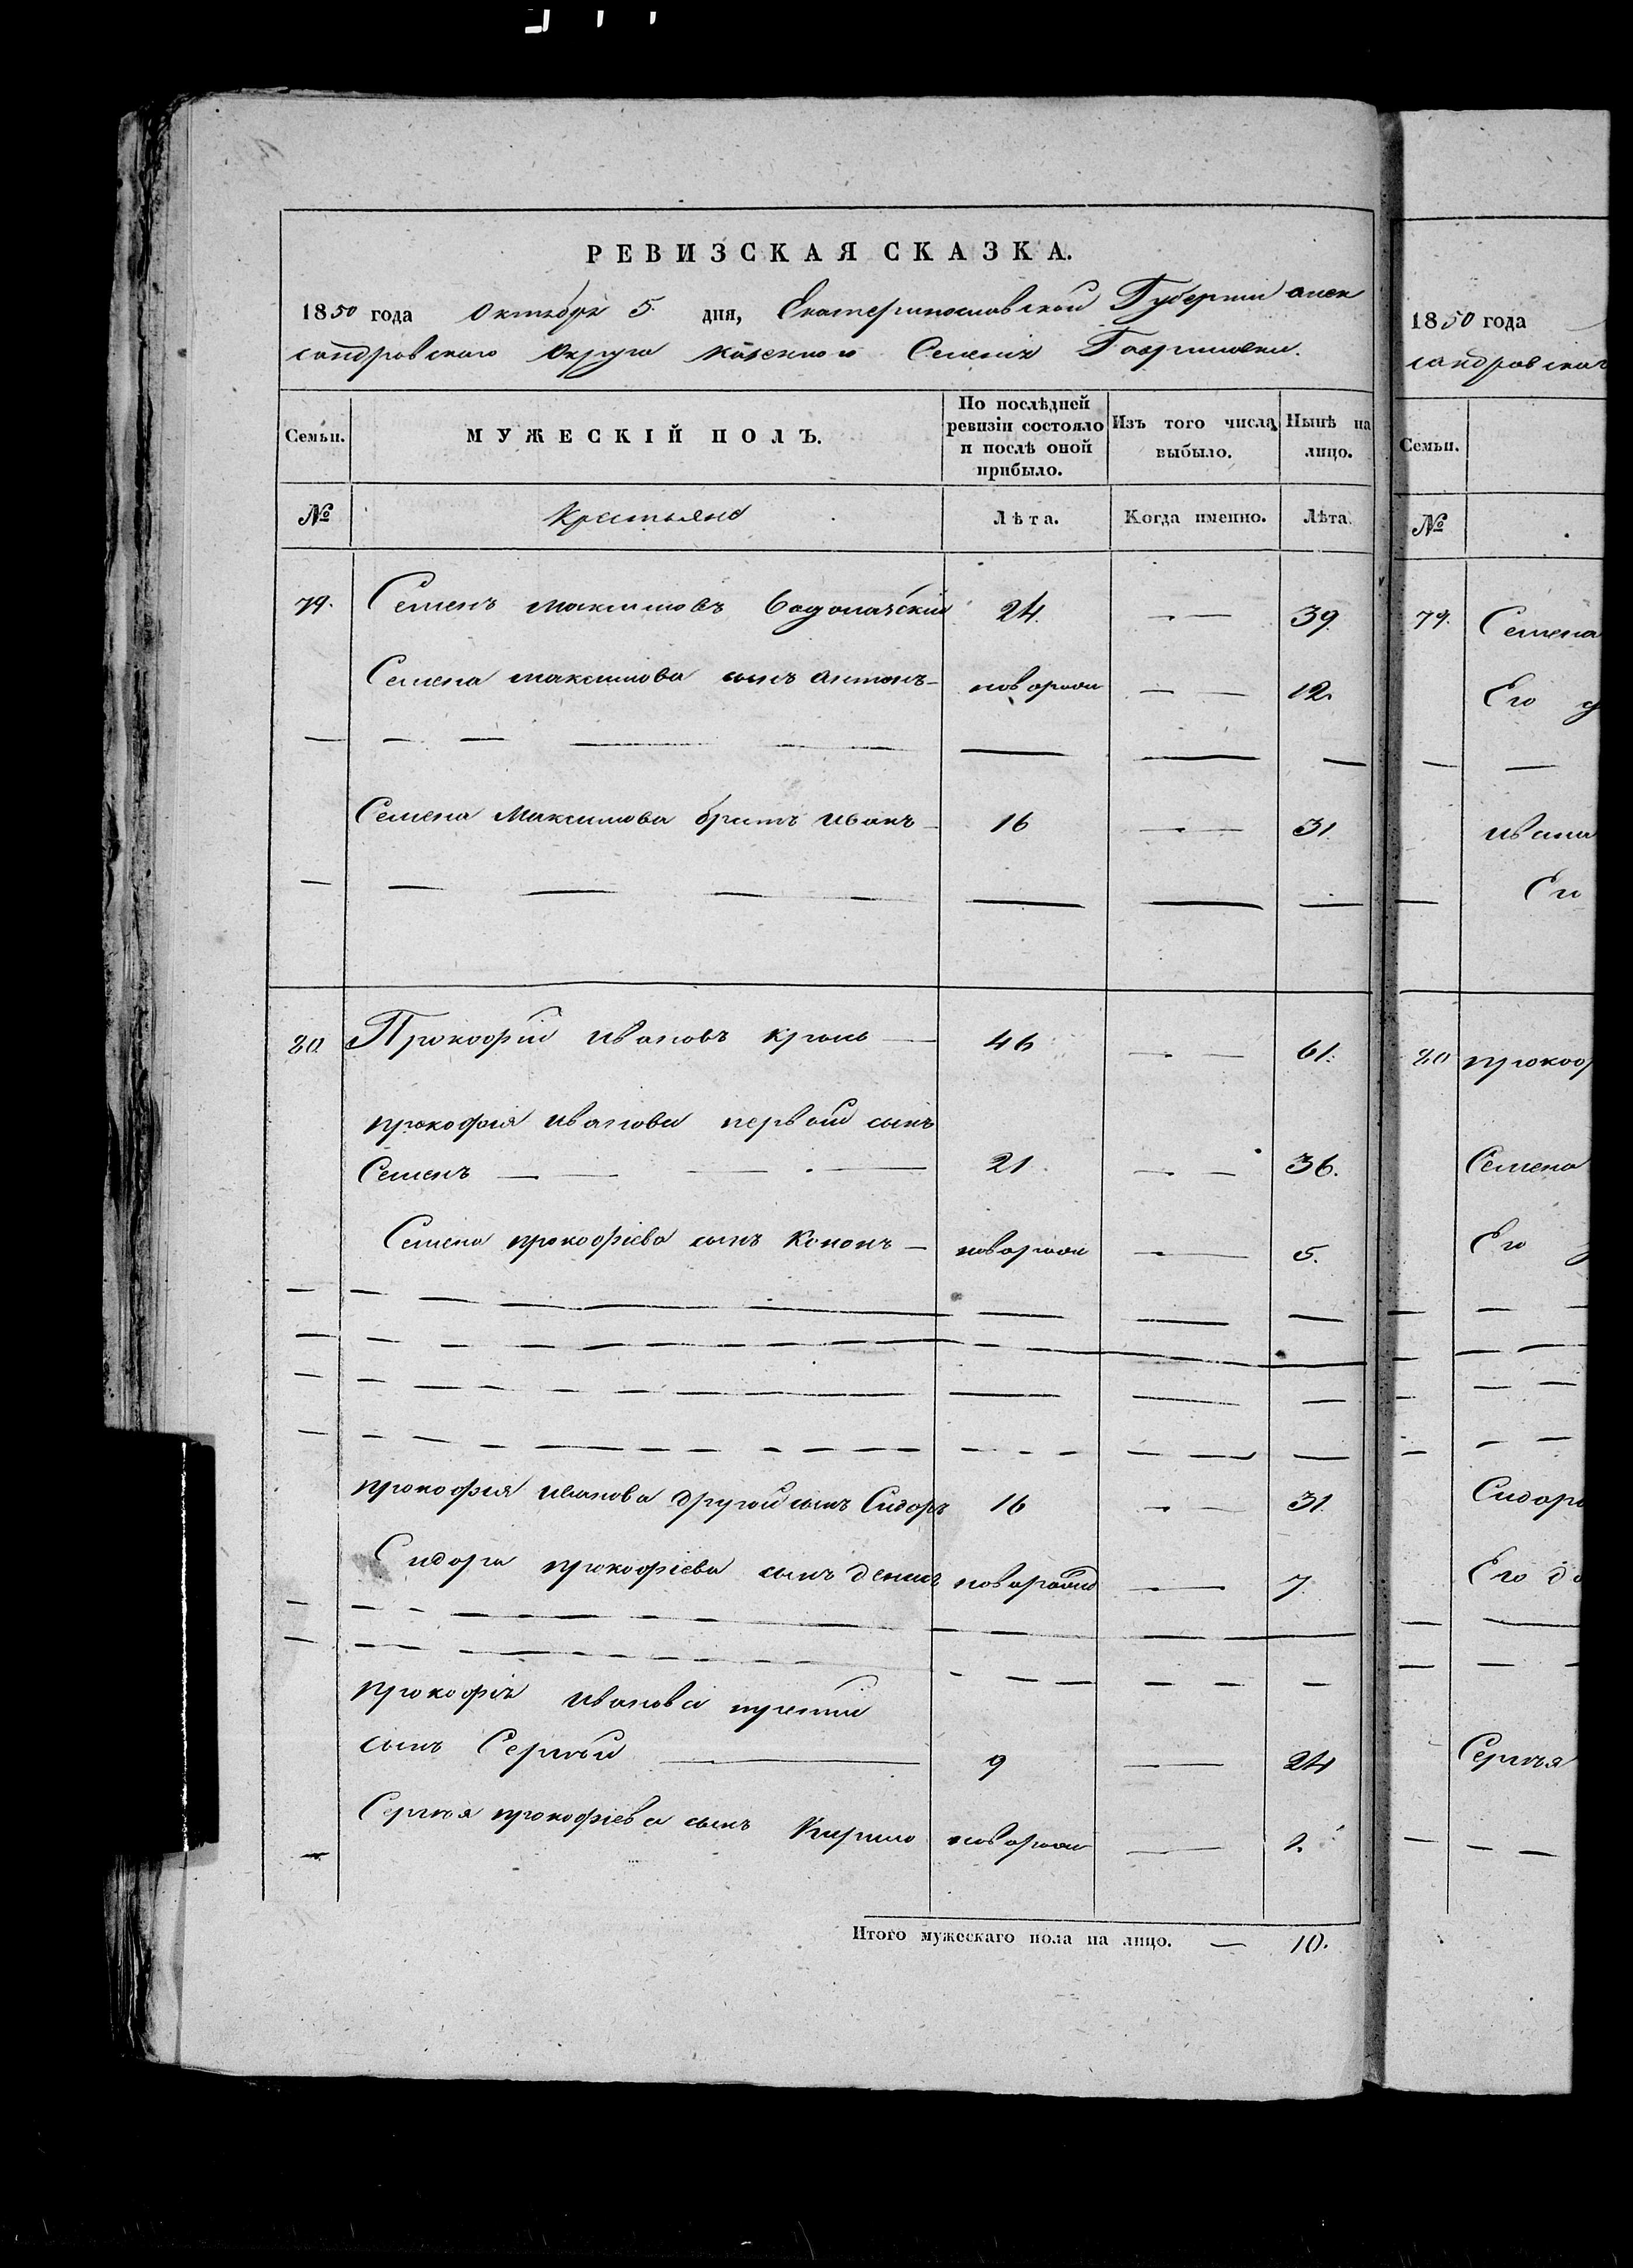 РЕВИЗСКАЯ СКАЗКА.
1850 года Октября 5. дня, Екатеринославской Губернии алек
сандровского Округа казенного Селенія Гавриловки.
Семьи. МУЖЕСКІЙ ПОЛЪ. По послѣдней ревизіи состояло и послѣ оной прибыло. Изъ того числа выбыло. Нынѣ на лицо.
№ Крестьяне Лѣта. Когда именно. Лѣта.
79. Семенъ максимовъ Водолазскій 24. — — 39.
Семена максимова сынъ антонъ новорож — — 12.
Семена Максимова братъ иванъ 16 — — 31.
80. Прокофій ивановъ кроль 46 — — 61.
прокофія иванова первой сынъ
Семенъ 21 — — 36.
Семена прокофіева сынъ Кононъ новорож — — 5.
прокофія иванова другой сынъ Сидоръ 16 — — 31.
Сидора прокофіева сынъ денисъ новорожд — — 7.
прокофія иванова третій
сынъ Сергѣй 9 — 24
Сергѣя прокофіева сынъ Кирило новорож — 1.
Итого мужескаго пола на лицо. — 10.
1850 года
сандровског
Семьи.
№
79. Семена
Его
ивана
Его
80 прокоф
Семена
Его
Сидора
Его до
Сергѣя